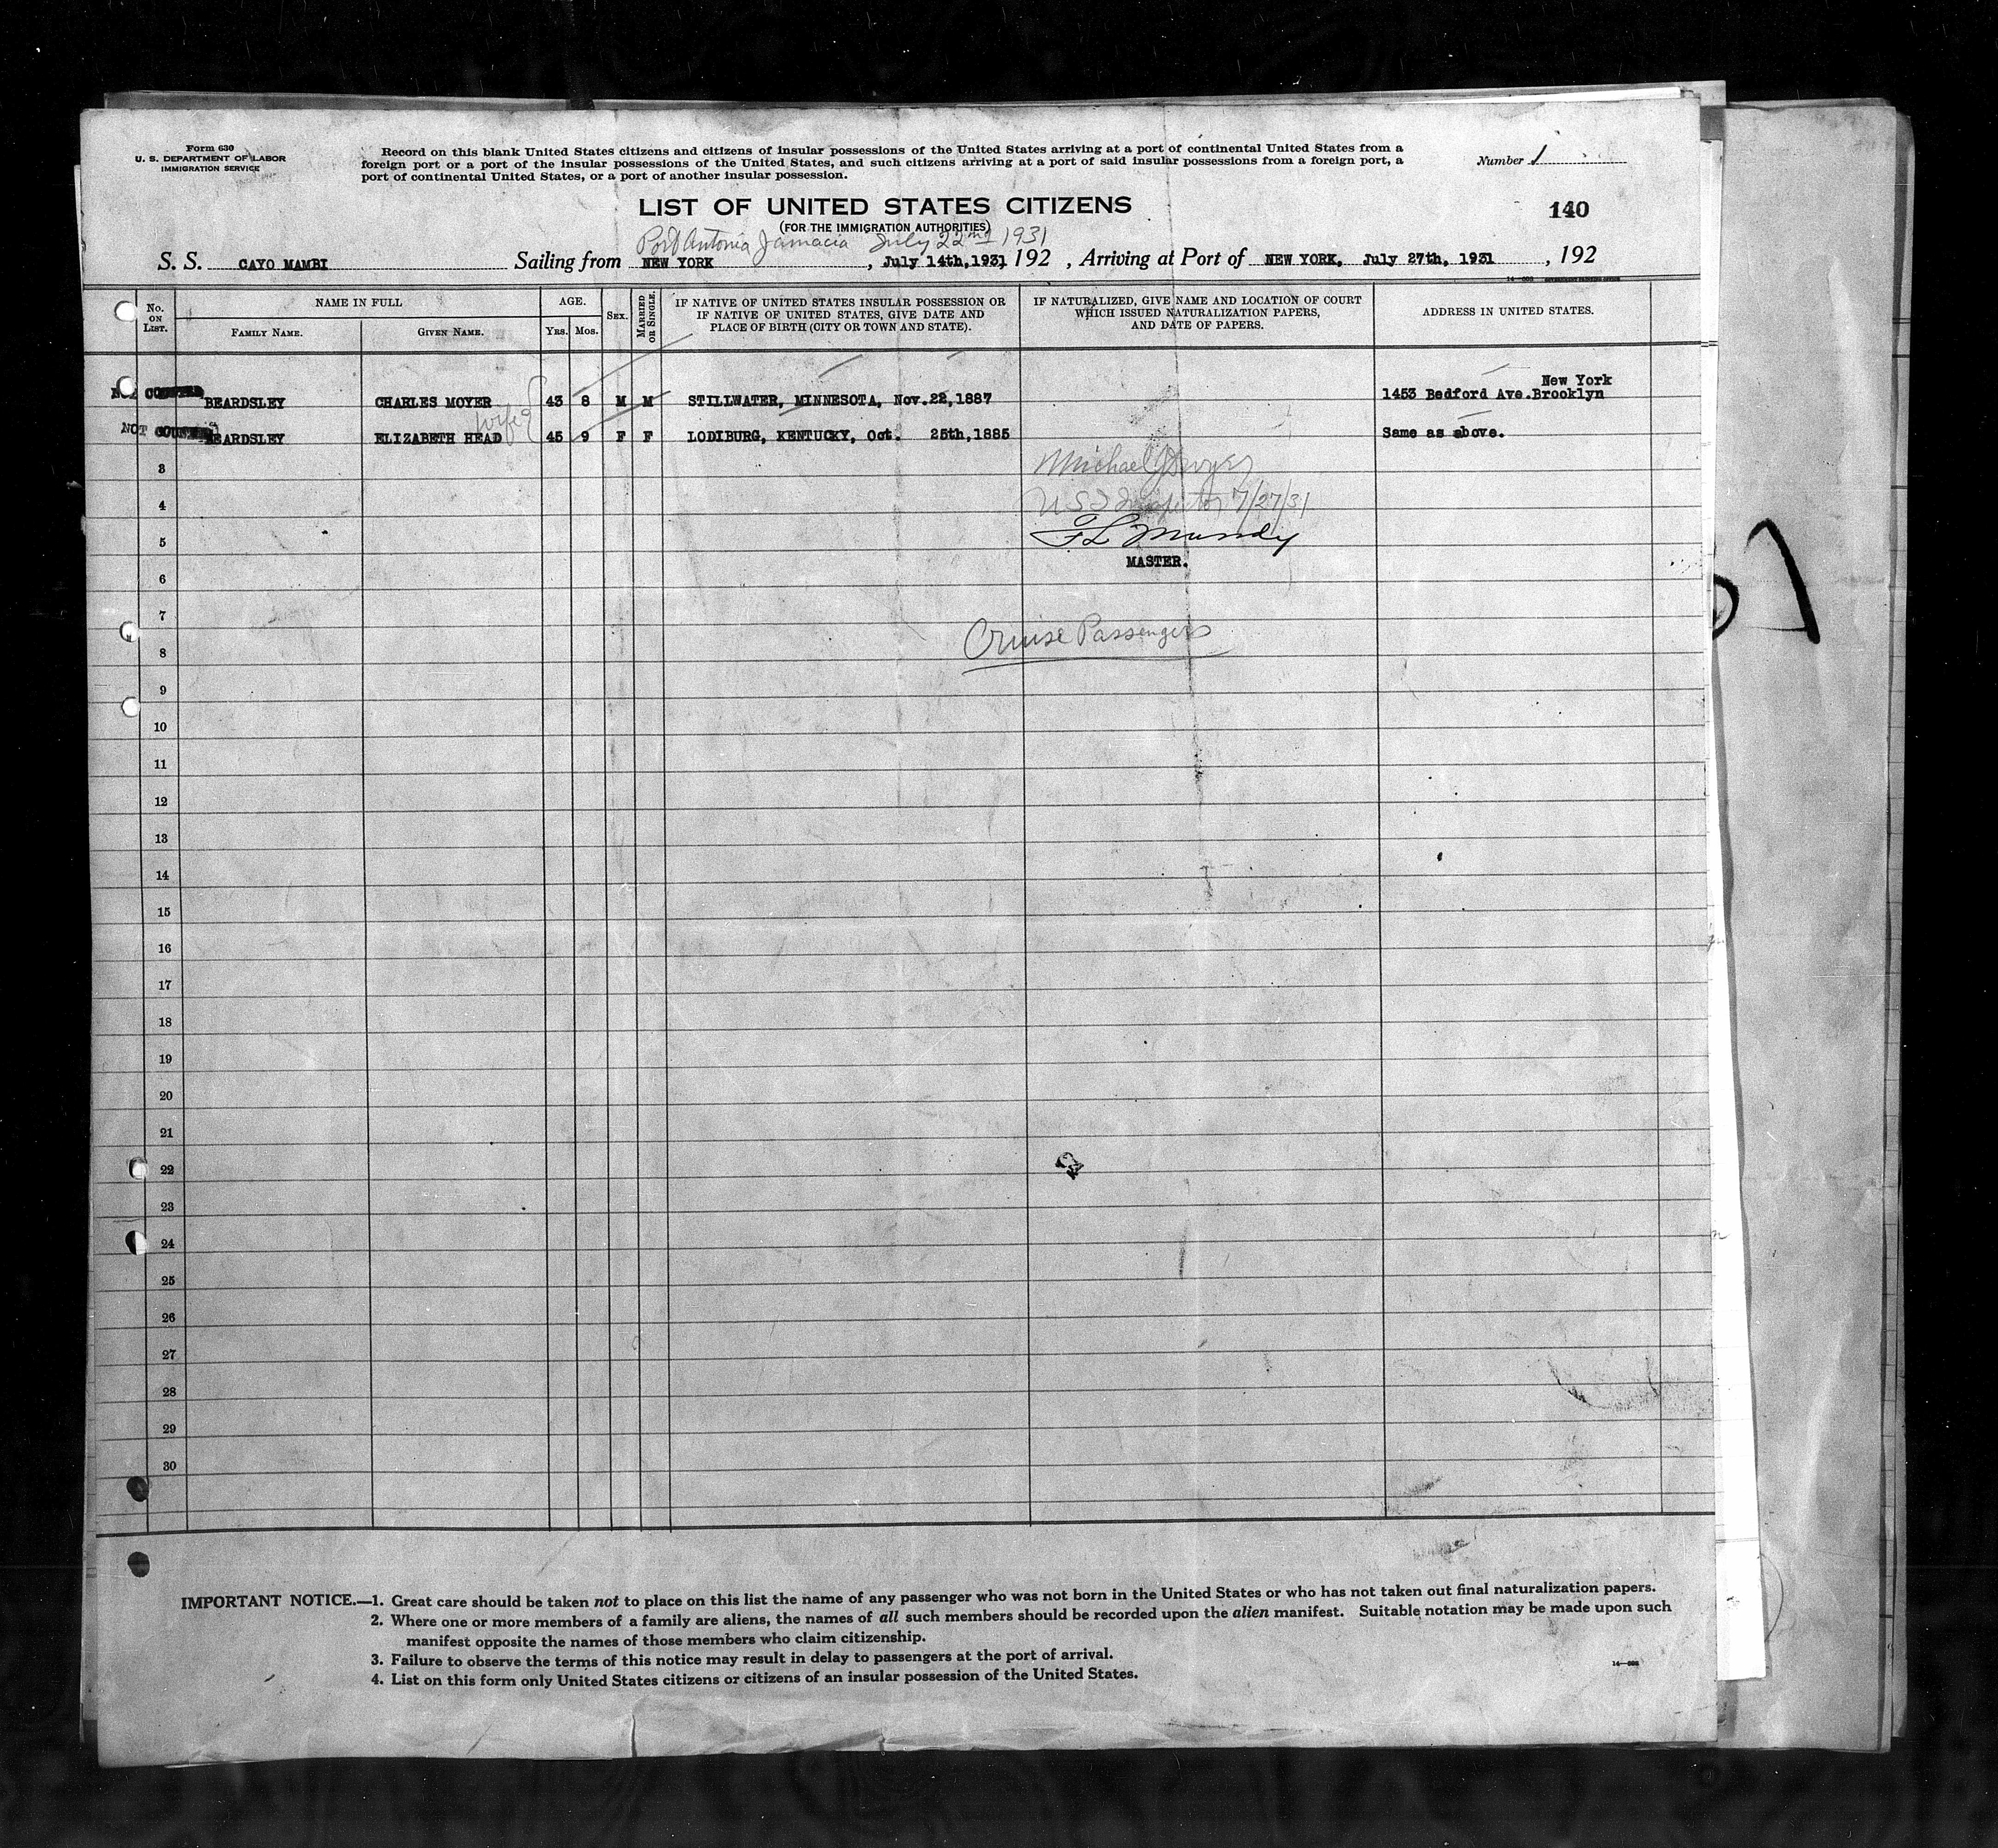 Form 630
U. S. DEPARTMENT OF LABOR
IMMIGRATION SERVICE
Record on this blank United States citizens and citizens of insular possessions of the United States arriving at a port of continental United States from a
foreign port or a port of the insular possessions of the United States, and such citizens arriving at a port of said insular possessions from a foreign port, a
port of continental United States, or a port of another insular possession.
Number 1
LIST OF UNITED STATES CITIZENS
140
(FOR THE IMMIGRATION AUTHORITIES)
Port Antonia Jamacia July 22nd 1931
S. S. CAYO MAMBI Sailing from NEW YORK, July 14th, 1931 192 , Arriving at Port of NEW YORK, July 27th, 1931 , 192
No. ON LIST.
NAME IN FULL
FAMILY NAME.
GIVEN NAME.
AGE.
YRS. MOS.
SEX.
MARRIED OR SINGLE.
IF NATIVE OF UNITED STATES INSULAR POSSESSION OR
IF NATIVE OF UNITED STATES, GIVE DATE AND
PLACE OF BIRTH (CITY OR TOWN AND STATE).
IF NATURALIZED, GIVE NAME AND LOCATION OF COURT
WHICH ISSUED NATURALIZATION PAPERS,
AND DATE OF PAPERS.
ADDRESS IN UNITED STATES.
New York
BEARDSLEY CHARLES MOYER 43 8 M M STILLWATER, MINNESOTA, Nov.22,1887 1453 Bedford Ave.Brooklyn
wife
NOT COUNTED BEARDSLEY ELIZABETH HEAD 45 9 F F LODIBURG, KENTUCKY, Oct. 25th,1885 Same as above.
3 Michael
4 7/27/31
5 F L Mundy
MASTER.
6
7
Cruise Passengers
8
9
10
11
12
13
14
15
16
17
18
19
20
21
22
23
24
25
26
27
28
29
30
IMPORTANT NOTICE.—1. Great care should be taken not to place on this list the name of any passenger who was not born in the United States or who has not taken out final naturalization papers.
2. Where one or more members of a family are aliens, the names of all such members should be recorded upon the alien manifest. Suitable notation may be made upon such
manifest opposite the names of those members who claim citizenship.
3. Failure to observe the terms of this notice may result in delay to passengers at the port of arrival.
4. List on this form only United States citizens or citizens of an insular possession of the United States.